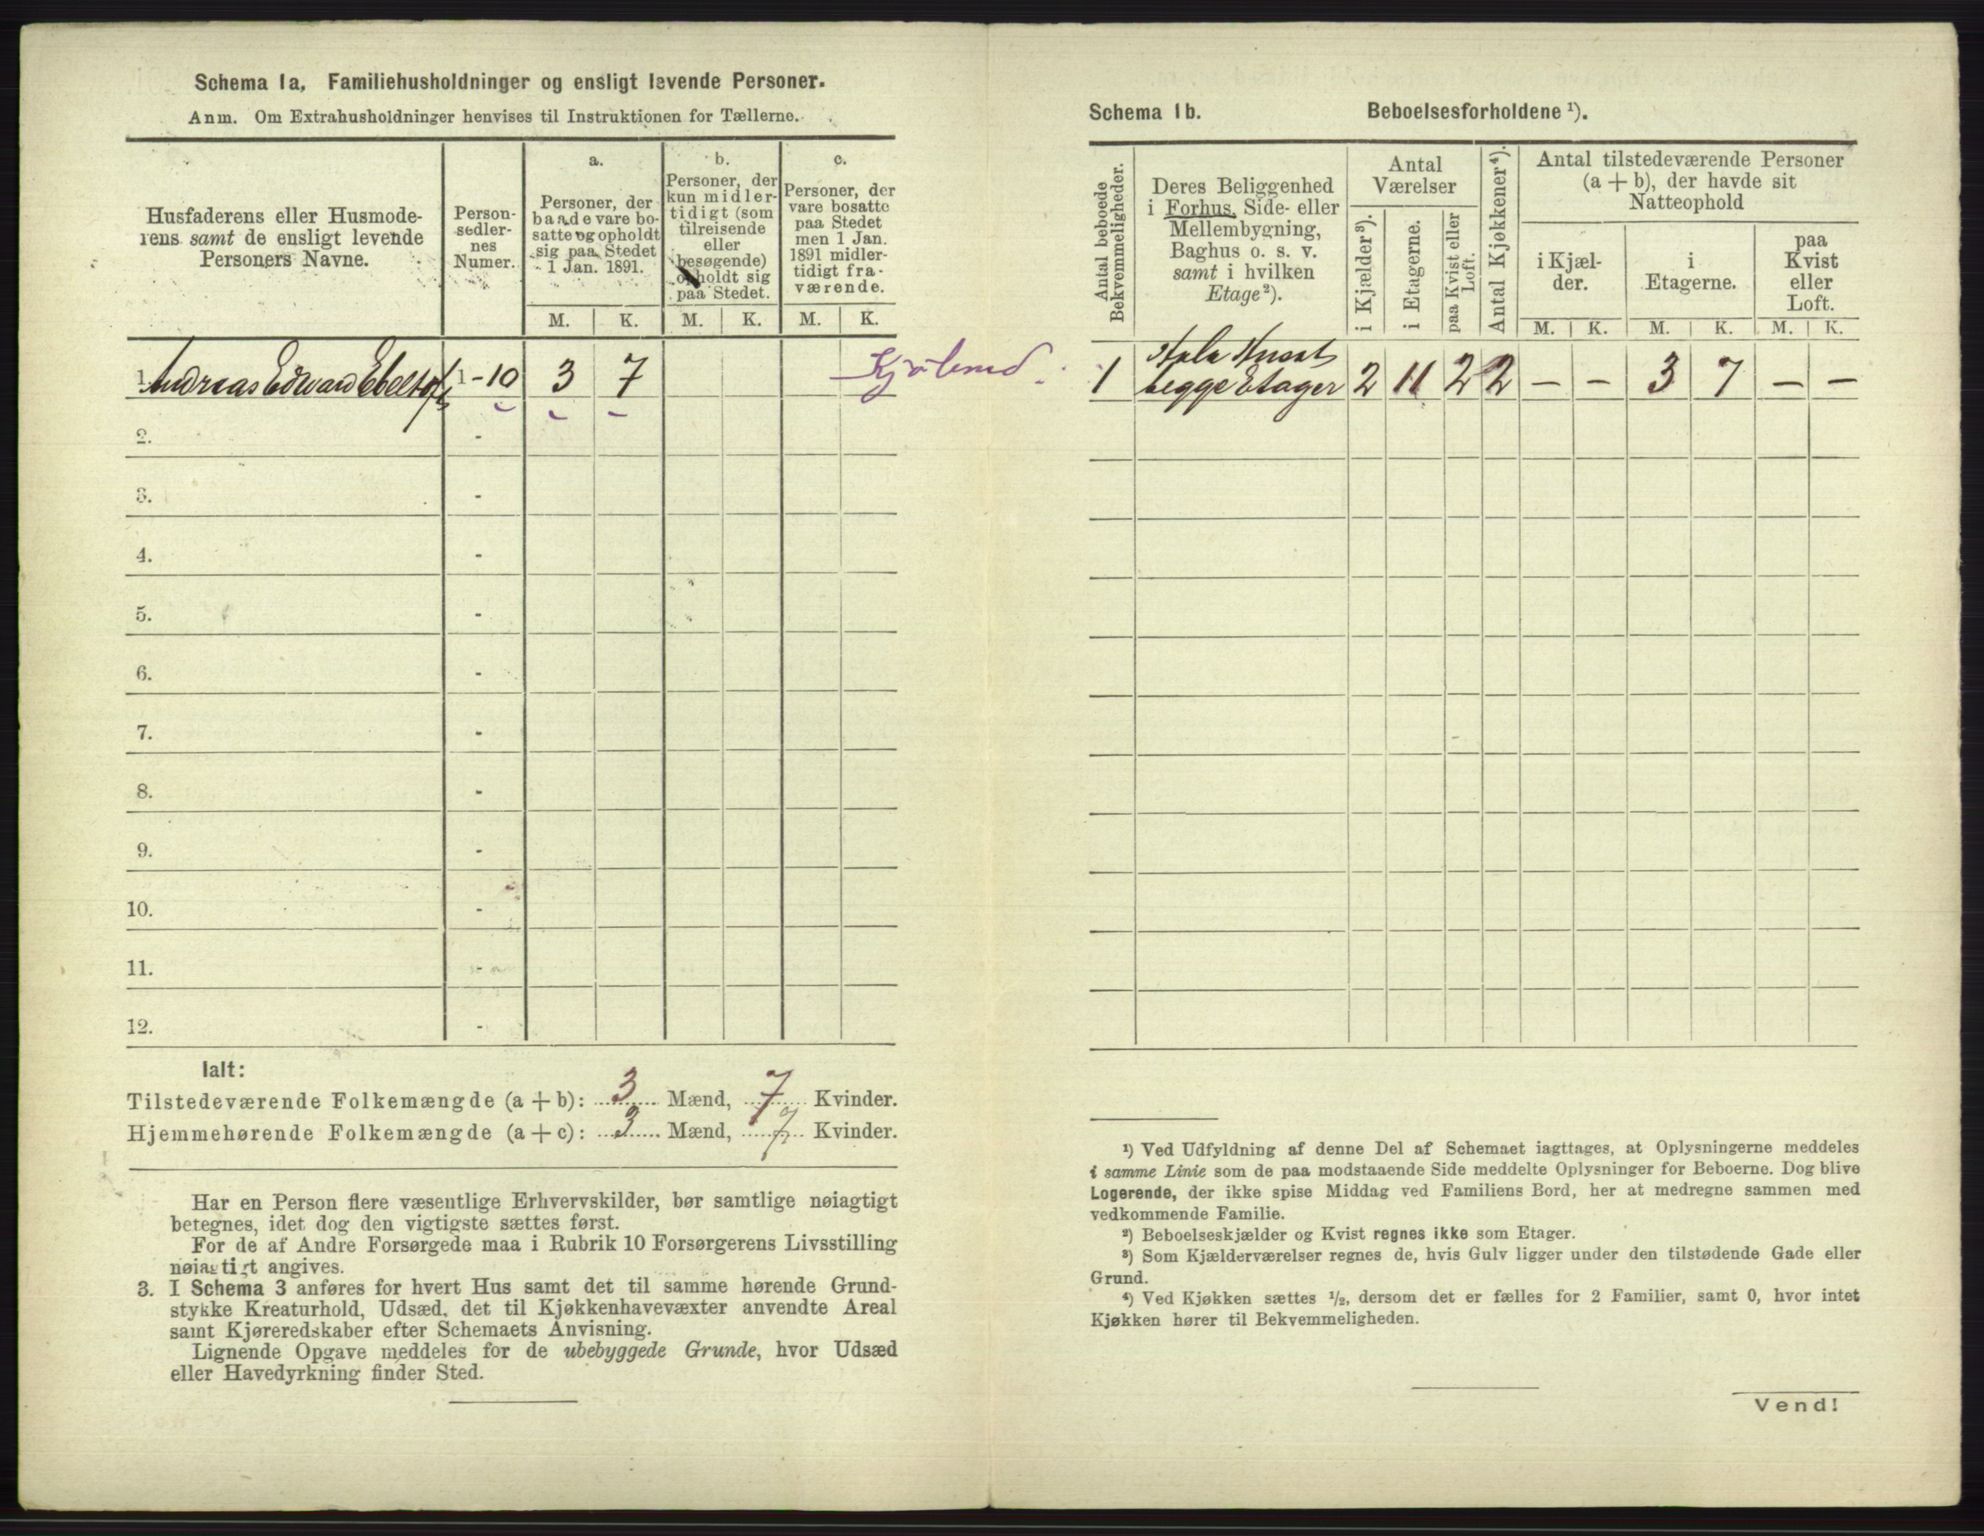 Schema 1a. Familiehusholdninger og ensligt levende Personer.
Anm. Om Extrahusholdninger henvises til Instruktionen for Tællerne.
Husfaderens eller Husmode-
rens samt de ensligt levende
Personers Navne.
Person-
sedler-
nes
Numer.
a.
Personer, der
baade vare bo-
satte og opholdt
sig paa Stedet
1 Jan. 1891.
b.
Personer, der
kun midler-
tidigt (som
tilreisende
eller
besøgende)
opholdt sig
paa Stedet.
c.
Personer, der
vare bosatte
paa Stedet
men 1 Jan.
1891 midler-
tidigt fra-
værende.
M. K. M. K. M. K.
1. Andreas Edward Ebeltoft 1-10 3 7
2. -
3. -
4. -
5. -
6. -
7. -
8. -
9. -
10. -
11. -
12. -
Ialt:
Tilstedeværende Folkemængde (a + b): 3 Mænd, 7 Kvinder.
Hjemmehørende Folkemængde (a + c): 3 Mænd, 7 Kvinder.
Har en Person flere væsentlige Erhvervskilder, bør samtlige nøiagtigt
betegnes, idet dog den vigtigste sættes først.
For de af Andre Forsørgede maa i Rubrik 10 Forsørgerens Livsstilling
nøiagtigt angives.
3. I Schema 3 anføres for hvert Hus samt det til samme hørende Grund-
stykke Kreaturhold, Udsæd, det til Kjøkkenhavevæxter anvendte Areal
samt Kjøreredskaber efter Schemaets Anvisning.
Lignende Opgave meddeles for de ubebyggede Grunde, hvor Udsæd
eller Havedyrkning finder Sted.
Schema 1b. Beboelsesforholdene ¹).
Antal beboede
Bekvemmeligheder.
Deres Beliggenhed
i Forhus, Side- eller
Mellembygning,
Baghus o. s. v.
samt i hvilken
Etage²).
Antal
Værelser
i Kjælder³).
i Etagerne.
paa Kvist eller
Loft.
Antal Kjøkkener⁴).
Antal tilstedeværende Personer
(a + b), der havde sit
Natteophold
i Kjæl-
der.
i
Etagerne.
paa
Kvist
eller
Loft.
M. K. M. K. M. K.
Hele Huset
1 begge Etager 2 11 2 2 — — 3 7 — —
¹) Ved Udfyldning af denne Del af Schemaet iagttages, at Oplysningerne meddeles
i samme Linie som de paa modstaaende Side meddelte Oplysninger for Beboerne. Dog blive
Logerende, der ikke spise Middag ved Familiens Bord, her at medregne sammen med
vedkommende Familie.
²) Beboelseskjælder og Kvist regnes ikke som Etager.
³) Som Kjælderværelser regnes de, hvis Gulv ligger under den tilstødende Gade eller
Grund.
⁴) Ved Kjøkken sættes ½, dersom det er fælles for 2 Familier, samt 0, hvor intet
Kjøkken hører til Bekvemmeligheden.
Vend!